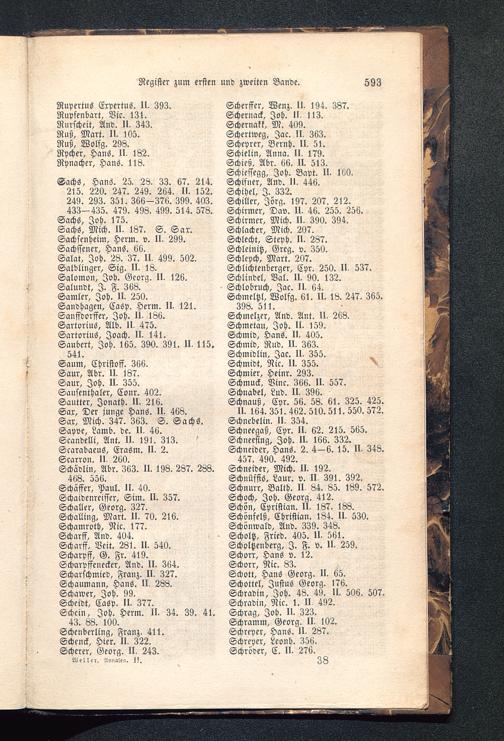 Register zum ersten und zweiten Bande. 593
Rupertus Expertus. II. 393.
Rupfenbart, Vic. 131.
Rurscheit, And. II. 343.
Ruß, Mart. II. 105.
Ruß, Wolfg. 298.
Rycher, Hans. II. 182.
Rynacher, Hans. 118.
Sachs, Hans. 25. 28. 33. 67. 214.
215. 220. 247. 249. 264. II. 152.
249. 293. 351. 366—376. 399. 403.
433—435. 479. 498. 499. 514. 578.
Sachs, Joh. 175.
Sachs, Mich. II. 187. S. Sax.
Sachsenheim, Herm. v. II. 299.
Sachssener, Hans. 66.
Salat, Joh. 28. 37. II. 499. 502.
Salblinger, Sig. II. 18.
Salomon, Joh. Georg. II. 126.
Salundt, J. F. 368.
Samler, Joh. II. 250.
Sandhagen, Casp. Herm. II. 121.
Sanffdorffer, Joh. II. 186.
Sartorius, Alb. II. 475.
Sartorius, Joach. II. 141.
Saubert, Joh. 165. 390. 391. II. 115.
541.
Saum, Christoff. 366.
Saur, Abr. II. 187.
Saur, Joh. II. 355.
Saufenthaler, Conr. 402.
Sautter, Jonath. II. 216.
Sax, Der junge Hans. II. 468.
Sax, Mich. 347. 363. S. Sachs.
Saype, Lamb. de. II. 46.
Scandelli, Ant. II. 191. 313.
Scarabaeus, Erasm. II. 2.
Scarron. II. 260.
Schädlin, Abr. 363. II. 198. 287. 288.
468. 556.
Schäffer, Paul. II. 40.
Schaidenreisser, Sim. II. 357.
Schaller, Georg. 327.
Schalling, Mart. II. 70. 216.
Schamroth, Nic. 177.
Scharff, And. 404.
Scharff, Veit. 281. II. 540.
Scharpff, G. Fr. 419.
Scharpffenecker, And. II. 364.
Scharschmied, Franz. II. 327.
Schaumann, Hans. II. 288.
Schawer, Joh. 99.
Scheidt, Casp. II. 377.
Schein, Joh. Herm. II. 34. 39. 41.
43. 88. 100.
Schenberling, Franz. 411.
Schenck, Hier. II. 322.
Scherer, Georg. II. 243.
Weller, Annalen. II.
Scherffer, Wenz. II. 194. 387.
Schernack, Joh. II. 113.
Schernakk, M. 409.
Schertweg, Jac. II. 363.
Scheyrer, Bernh. II. 51.
Schielin, Anna. II. 179.
Schieß, Abr. 66. II. 513.
Schiessegg, Joh. Bapt. II. 160.
Schifner, And. II. 446.
Schihel, J. 332.
Schiller, Jörg. 197. 207. 212.
Schirmer, Dav. II. 46. 255. 256.
Schirmer, Mich. II. 390. 394.
Schlacker, Mich. 207.
Schlecht, Steph. II. 287.
Schleinitz, Greg. v. 350.
Schleych, Mart. 207.
Schlichtenberger, Eyr. 250. II. 537.
Schlindel, Bal. II. 90. 132.
Schlobruch, Jac. II. 64.
Schmeltzl, Wolfg. 61. II. 18. 247. 365.
398. 511.
Schmelzer, And. Ant. II. 268.
Schmetau, Joh. II. 159.
Schmid, Hans. II. 405.
Schmid, Rud. II. 363.
Schmidlin, Jac. II. 355.
Schmidt, Nic. II. 355.
Schmier, Heinr. 293.
Schmuck, Vinc. 366. II. 557.
Schnabel, Lud. II. 396.
Schnauß, Cyr. 56. 58. 61. 325. 425.
II. 164. 351. 462. 510. 511. 550. 572.
Schnebelin. II. 354.
Schneegaß, Cyr. II. 62. 215. 565.
Schneesing, Joh. II. 166. 332.
Schneider, Hans. 2. 4—6. 15. II. 348.
457. 490. 492.
Schneider, Mich. II. 192.
Schnüffis, Laur. v. II. 391. 392.
Schnurr, Balth. II. 84. 85. 189. 572.
Schoch, Joh. Georg. 412.
Schön, Christian. II. 187. 188.
Schönfelß, Christian. 184. II. 530.
Schönwald, And. 339. 348.
Scholtz, Fried. 405. II. 561.
Scholtzenberg, J. F. v. II. 259.
Schorr, Hans v. 12.
Schorr, Nic. 83.
Schott, Hans Georg. II. 65.
Schottel, Justus Georg. 176.
Schradin, Joh. 48. 49. II. 506. 507.
Schradin, Nic. 1. II. 492.
Schrag, Joh. II. 323.
Schramm, Georg. II. 102.
Schreyer, Hans. II. 287.
Schreyer, Leonh. 356.
Schröder, C. II. 276.
38